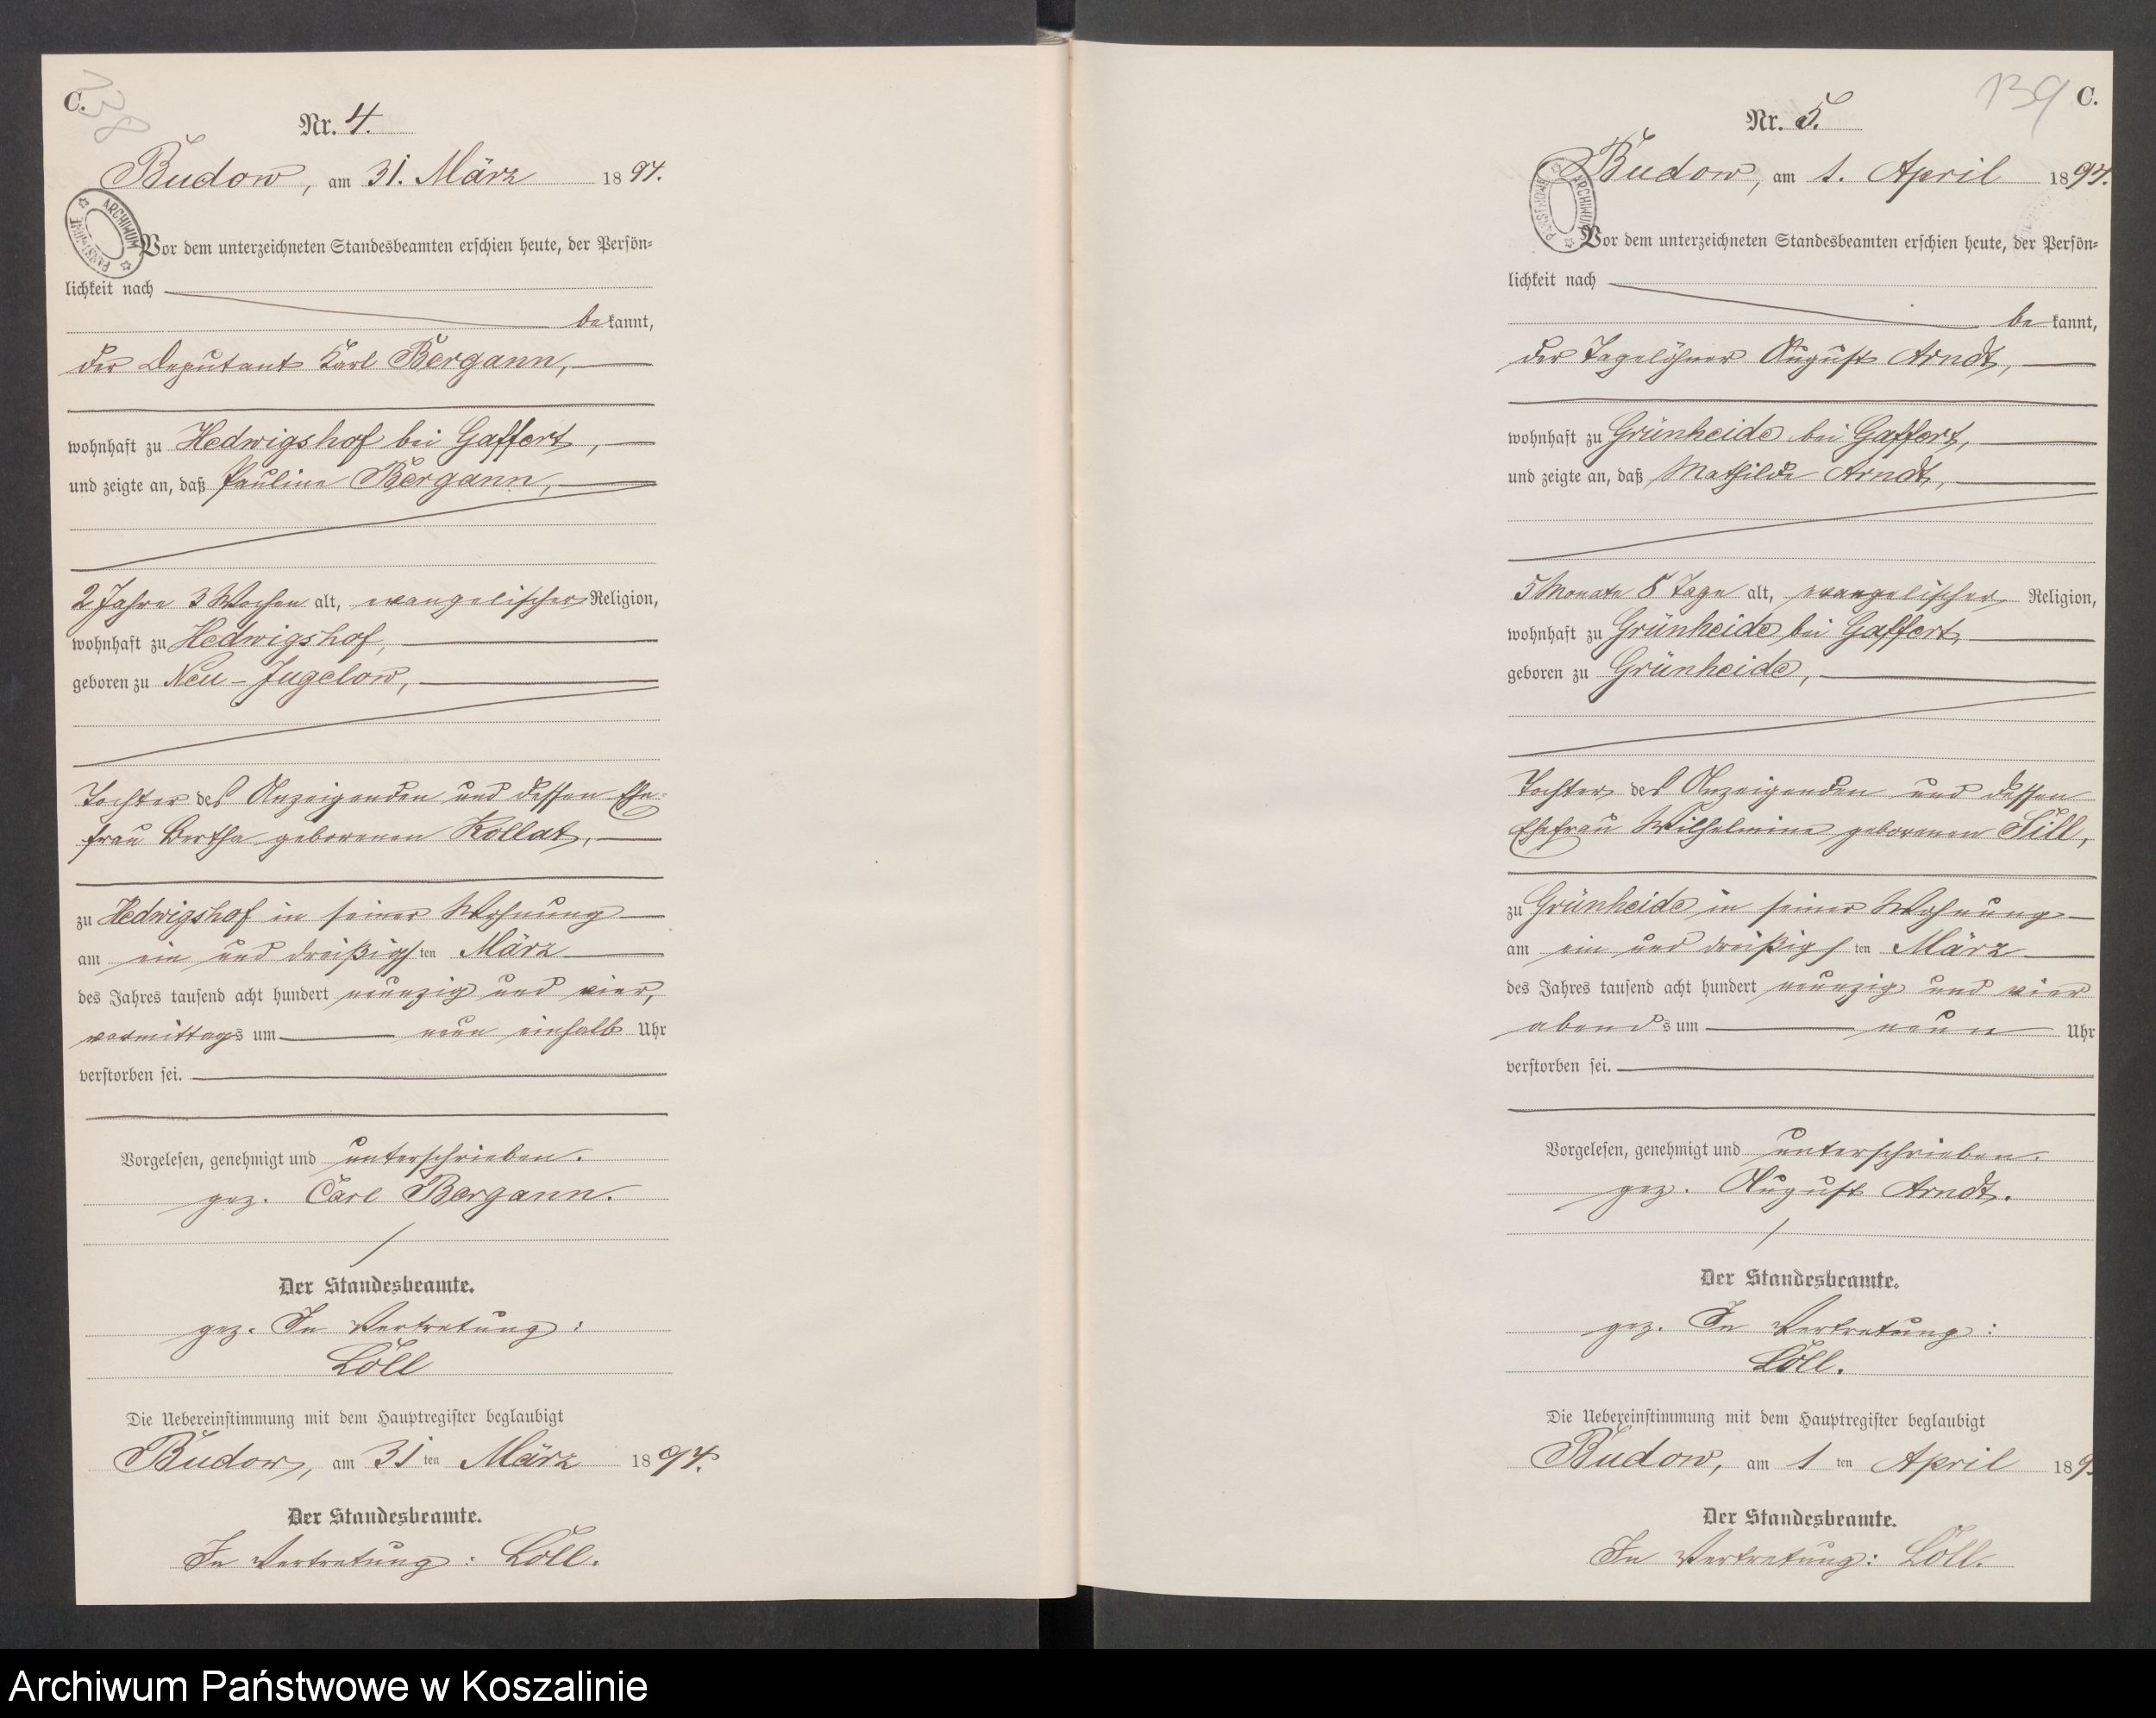 C.
138
Nr. 4.
Budow, am 31. März 1894.
ARCHIWUM PAŃSTWOWE
Vor dem unterzeichneten Standesbeamten erschien heute, der Persön-
lichkeit nach
bekannt,
der Deputant Karl Bergann,
wohnhaft zu Hedwigshof bei Gaffert,
und zeigte an, daß Pauline Bergann,
2 Jahre 3 Wochen alt, evangelischer Religion,
wohnhaft zu Hedwigshof,
geboren zu Neu-Jugelow,
Tochter des Anzeigenden und dessen Ehe-
frau Bertha geborenen Kollat,
zu Hedwigshof in seiner Wohnung
am ein und dreißigsten März
des Jahres tausend acht hundert neunzig und vier,
vormittags um neun einhalb Uhr
verstorben sei.
Vorgelesen, genehmigt und unterschrieben.
gez. Carl Bergann.
Der Standesbeamte.
gez. In Vertretung:
Löll
Die Uebereinstimmung mit dem Hauptregister beglaubigt
Budow, am 31 ten März 1894.
Der Standesbeamte.
In Vertretung: Löll.
139 C.
Nr. 5.
Budow, am 1. April 1894.
ARCHIWUM PAŃSTWOWE
Vor dem unterzeichneten Standesbeamten erschien heute, der Persön-
lichkeit nach
bekannt,
der Tagelöhner August Arndt,
wohnhaft zu Grünheide bei Gaffert,
und zeigte an, daß Mathilde Arndt,
5 Monate 8 Tage alt, evangelischer Religion,
wohnhaft zu Grünheide bei Gaffert,
geboren zu Grünheide,
Tochter des Anzeigenden und dessen
Ehefrau Wilhelmine geborenen Sill,
zu Grünheide in seiner Wohnung
am ein und dreißigsten März
des Jahres tausend acht hundert neunzig und vier
abends um neun Uhr
verstorben sei.
Vorgelesen, genehmigt und unterschrieben.
gez. August Arndt.
Der Standesbeamte.
gez. In Vertretung:
Löll.
Die Uebereinstimmung mit dem Hauptregister beglaubigt
Budow, am 1 ten April 189
Der Standesbeamte.
In Vertretung: Löll.
Archiwum Państwowe w Koszalinie